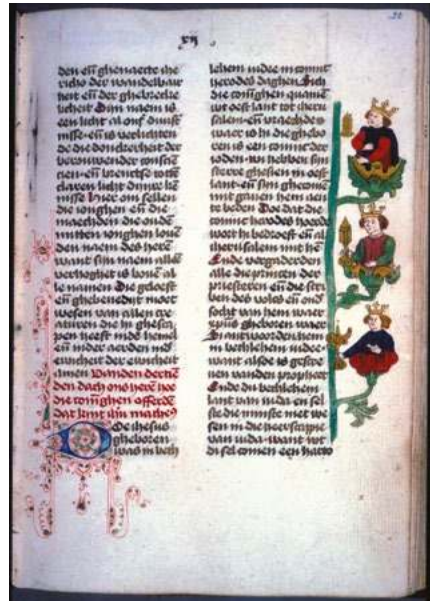 xij
den eñ ghenaerte
der wandelbaer
heit eñ der
heit Dijn naem is
een licht al onse duust
nisse eñ is verlichten
de die donckerheit der
claren licht
nisse Hier om sellen
die ionghen eñ die
maechden die oude
mitten ionghen louē
den naem des herē
want sijn naem alleē
verhoghet is bouē al
le namen Die gheloeft
eñ ghebenedijt moet
wesen van allen cre
aturen die in
heeft inde hemel
eñ inder aerden
ewicheit der ewicheit
amen Vanden dertiē
den dach ons herē hoe
die coninghen offerdē
dat leert sijn
Doe ihesus
gheboren
was in beth
lehem iudee in coninc
herodes daghen Sich
die coninghen quamē
wt oest lant tot iheru
salem eñ vraechdē
waer is hi die ghebo
ren is een coninc der
ioden wi hebben sijn
sterre ghesien in oest
lant eñ sijn ghecomē
mit gauen hem aen
te beden Doe dat die
coninc herodes hoerde
wort hi bedroeft eñ al
iherusalem mit hē
Ende vergaderden
alle die princen der
priesteren eñ die scri
ben des volcs eñ ond
socht van hem waer
xpus gheboren waer
Si antwoorden hem
in bethlehem iudee
want also is ghescre
uen vanden prophete
Ende du bethlehem
lant van iuda en sel
ste die minste niet we
sen in die heerscapie
van iuda want wt
di sel comen een harto